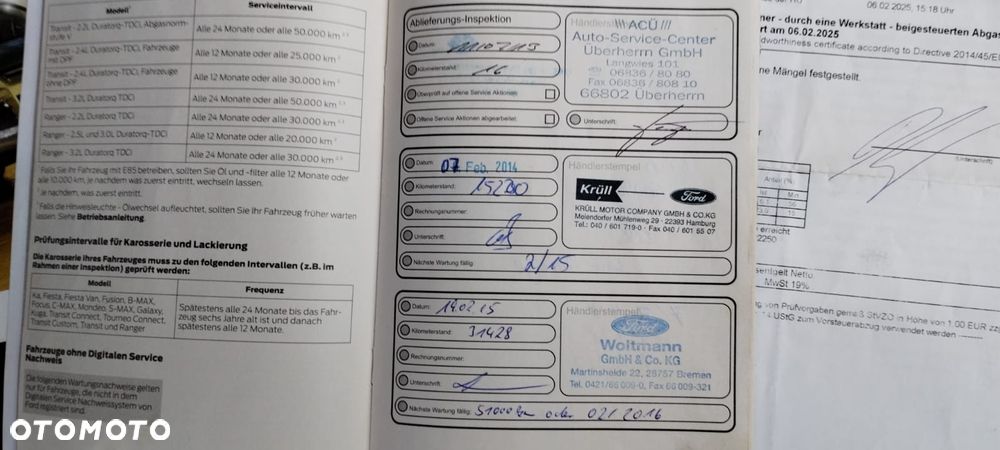 Modell
Serviceintervall
Transit - 2.2L Duratorq-TDCi, Abgasnorm-
stufe V
Alle 24 Monate oder alle 50.000 km
Transit - 2.4L Duratorq-TDCi, Fahrzeuge
mit DPF
Alle 12 Monate oder alle 25.000 km
Transit - 2.4L Duratorq-TDCi, Fahrzeuge
ohne DPF
Alle 12 Monate oder alle 30.000 km
Transit - 3.2L Duratorq TDCi
Alle 24 Monate oder alle 50.000 km
Ranger - 2.2L Duratorq TDCi
Alle 24 Monate oder alle 30.000 km
Ranger - 2.5L und 3.0L Duratorq-TDCi
Alle 12 Monate oder alle 20.000 km
Ranger - 3.2L Duratorq TDCi
Alle 24 Monate oder alle 30.000 km
Falls Sie Ihr Fahrzeug mit E85 betreiben, sollten Sie Öl und -filter alle 12 Monate oder
alle 10.000 km, je nachdem was zuerst eintritt, wechseln lassen.
Je nachdem, was zuerst eintritt.
Falls die Hinweisleuchte - Ölwechsel aufleuchtet, sollten Sie Ihr Fahrzeug früher warten
lassen. Siehe Betriebsanleitung.
Prüfungsintervalle für Karosserie und Lackierung
Die Karosserie Ihres Fahrzeuges muss zu den folgenden Intervallen (z.B. im
Rahmen einer Inspektion) geprüft werden:
Modell
Frequenz
Ka, Fiesta, Fiesta Van, Fusion, B-MAX,
Focus, C-MAX, Mondeo, S-MAX, Galaxy,
Kuga, Transit Connect, Tourneo Connect,
Transit Custom, Transit und Ranger
Spätestens alle 24 Monate bis das Fahr-
zeug sechs Jahre alt ist und danach
spätestens alle 12 Monate.
Fahrzeuge ohne Digitalen Service
Nachweis
Die folgenden Wartungsnachweise gelten
nur für Fahrzeuge, die nicht in dem
Digitalen Service Nachweissystem von
Ford registriert sind.
OTOMOTO
Ablieferungs-Inspektion
Datum
Kilometerstand:
16
Überprüft auf offene Service Aktionen
Offene Service Aktionen abgearbeitet:
Händlerstempel
ACÜ
Auto-Service-Center
Überherrn GmbH
Langwies 101
06836 / 80 80
Fax 06836 / 808 10
66802 Überherrn
Unterschrift:
Datum
07 Feb. 2014
Kilometerstand:
15200
Rechnungsnummer:
Unterschrift:
Nächste Wartung fällig
2/15
Händlerstempel
Krüll
Ford
KRÜLL MOTOR COMPANY GMBH & CO.KG
Meiendorfer Mühlenweg 29 - 22393 Hamburg
Tel.: 040 / 601 719-0 · Fax 040 / 601 55 07
Datum:
19.02.15
Kilometerstand:
31428
Rechnungsnummer:
Unterschrift:
Nächste Wartung fällig:
51000 km oder 02/2016
Händlerstempel
Ford
Woltmann
GmbH & Co. KG
Martinsheide 22, 28757 Bremen
Tel. 0421/66 009-0, Fax 66 009-321
06.02.2025, 15:18 Uhr
ner - durch eine Werkstatt - beigesteuerten Abgas
rt am 06.02.2025
dworthiness certificate according to Directive 2014/45/E
ne Mängel festgestellt.
(Unterschrift)
erreicht
2250
Netto
MwSt 19%
von Prüfvorgaben gemäß StVZO in Höhe von 1,00 EUR zz
14 UStG zum Vorsteuerabzug verwendet werden